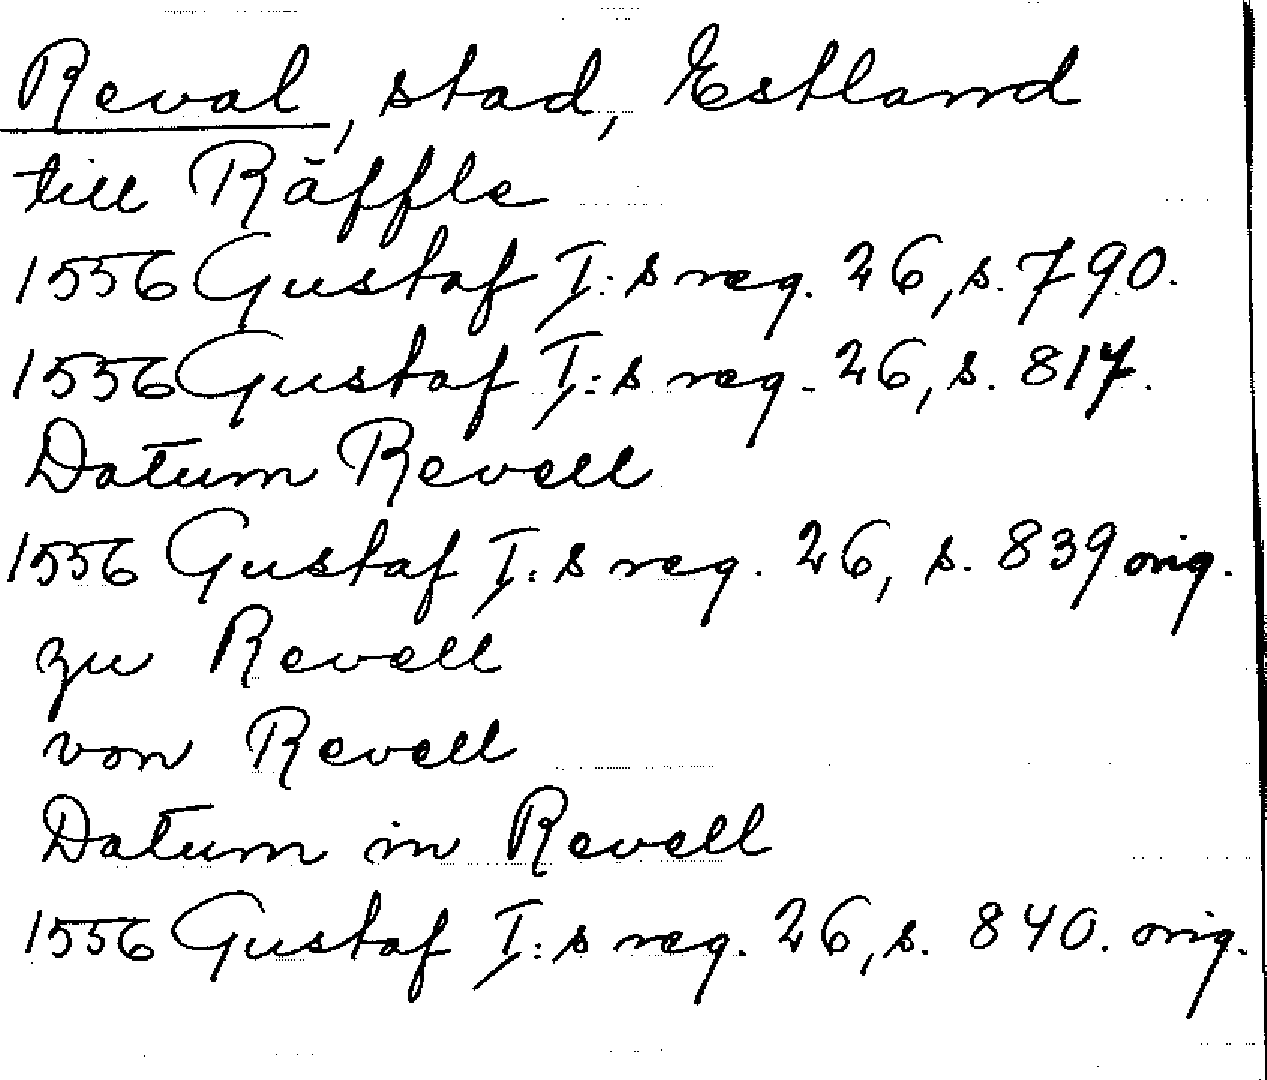 Reval, stad, Estland
till Räffle
1556 Gustaf I:s reg. 26, s. 790.
1556 Gustaf I:s reg. 26, s. 817.
Datum Revell
1556 Gustaf I:s reg. 26, s. 839 orig.
zu Revell
von Revell
Datum in Revell
1556 Gustaf I:s reg. 26, s. 840. orig.